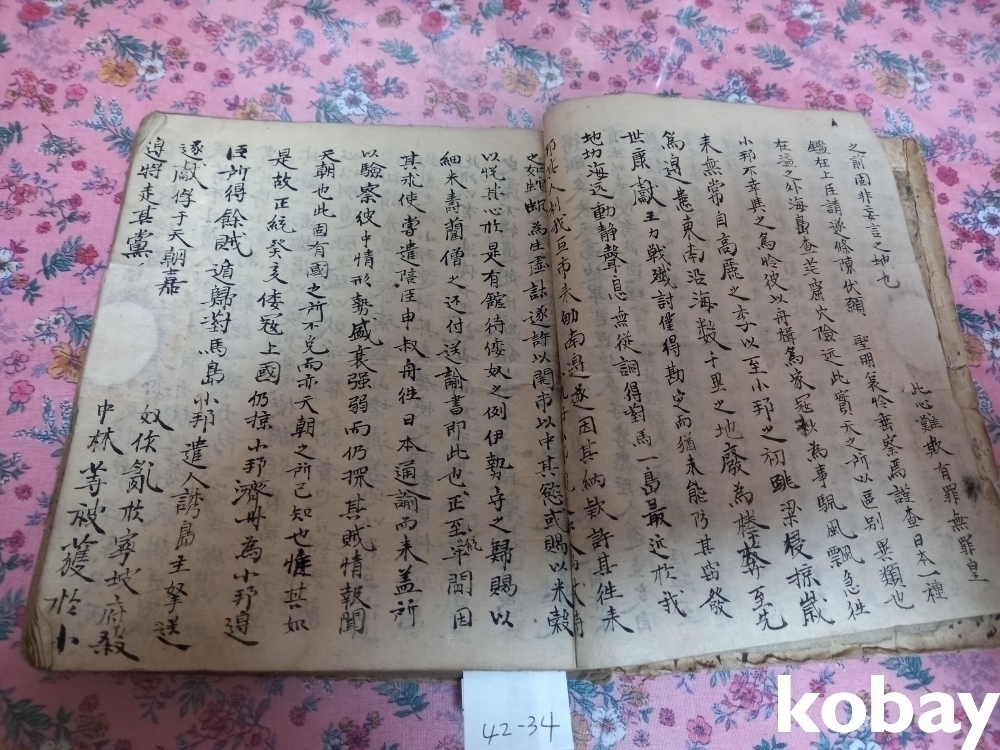 之前固非妄言之地也
此心難欺有罪無罪皇
鑑在上臣請逐條陳伏願 聖明哀怜密察焉謹查日本一種
在溟之外海島查茫窟穴險远此實天之所以區別異類也
小邦不幸與之為怜彼以舟楫為家冦 為事颿風飄急徃
来無常自高麗之季以至小邦之初跳梁侵掠歲
為邉患東南沿海数千里之地廢為榛莽至先
世康獻王力戦殱討僅得勘定而猶未能防其窃發
地切海远動静聲息無從詗得對馬一島最近扵我
因其納欵許其徃来
之如 為生虚計遂許以開市以中其慾或賜以米穀
以悦其心扵是有舘待倭奴之例伊勢守之歸賜以
細米壽藺僧之还付送諭書即此也正統至 間因
其求使嘗遣陪臣申叔舟徃日本通諭而来盖所
以驗察彼中情形勢盛衰强弱而仍探其賊情報聞
天朝也此固有國之所不免而亦天朝之所已知也惟其如
是故正統癸亥倭冦上國仍掠小邦濟州為小邦邊
臣所得餘賊遁歸對馬島小邦遣人誘島主拏送
遂献俘于天朝嘉
奴倭亂扵寧坡府殺
邉将走其黨
中林等被獲扵小
42-34
kobay